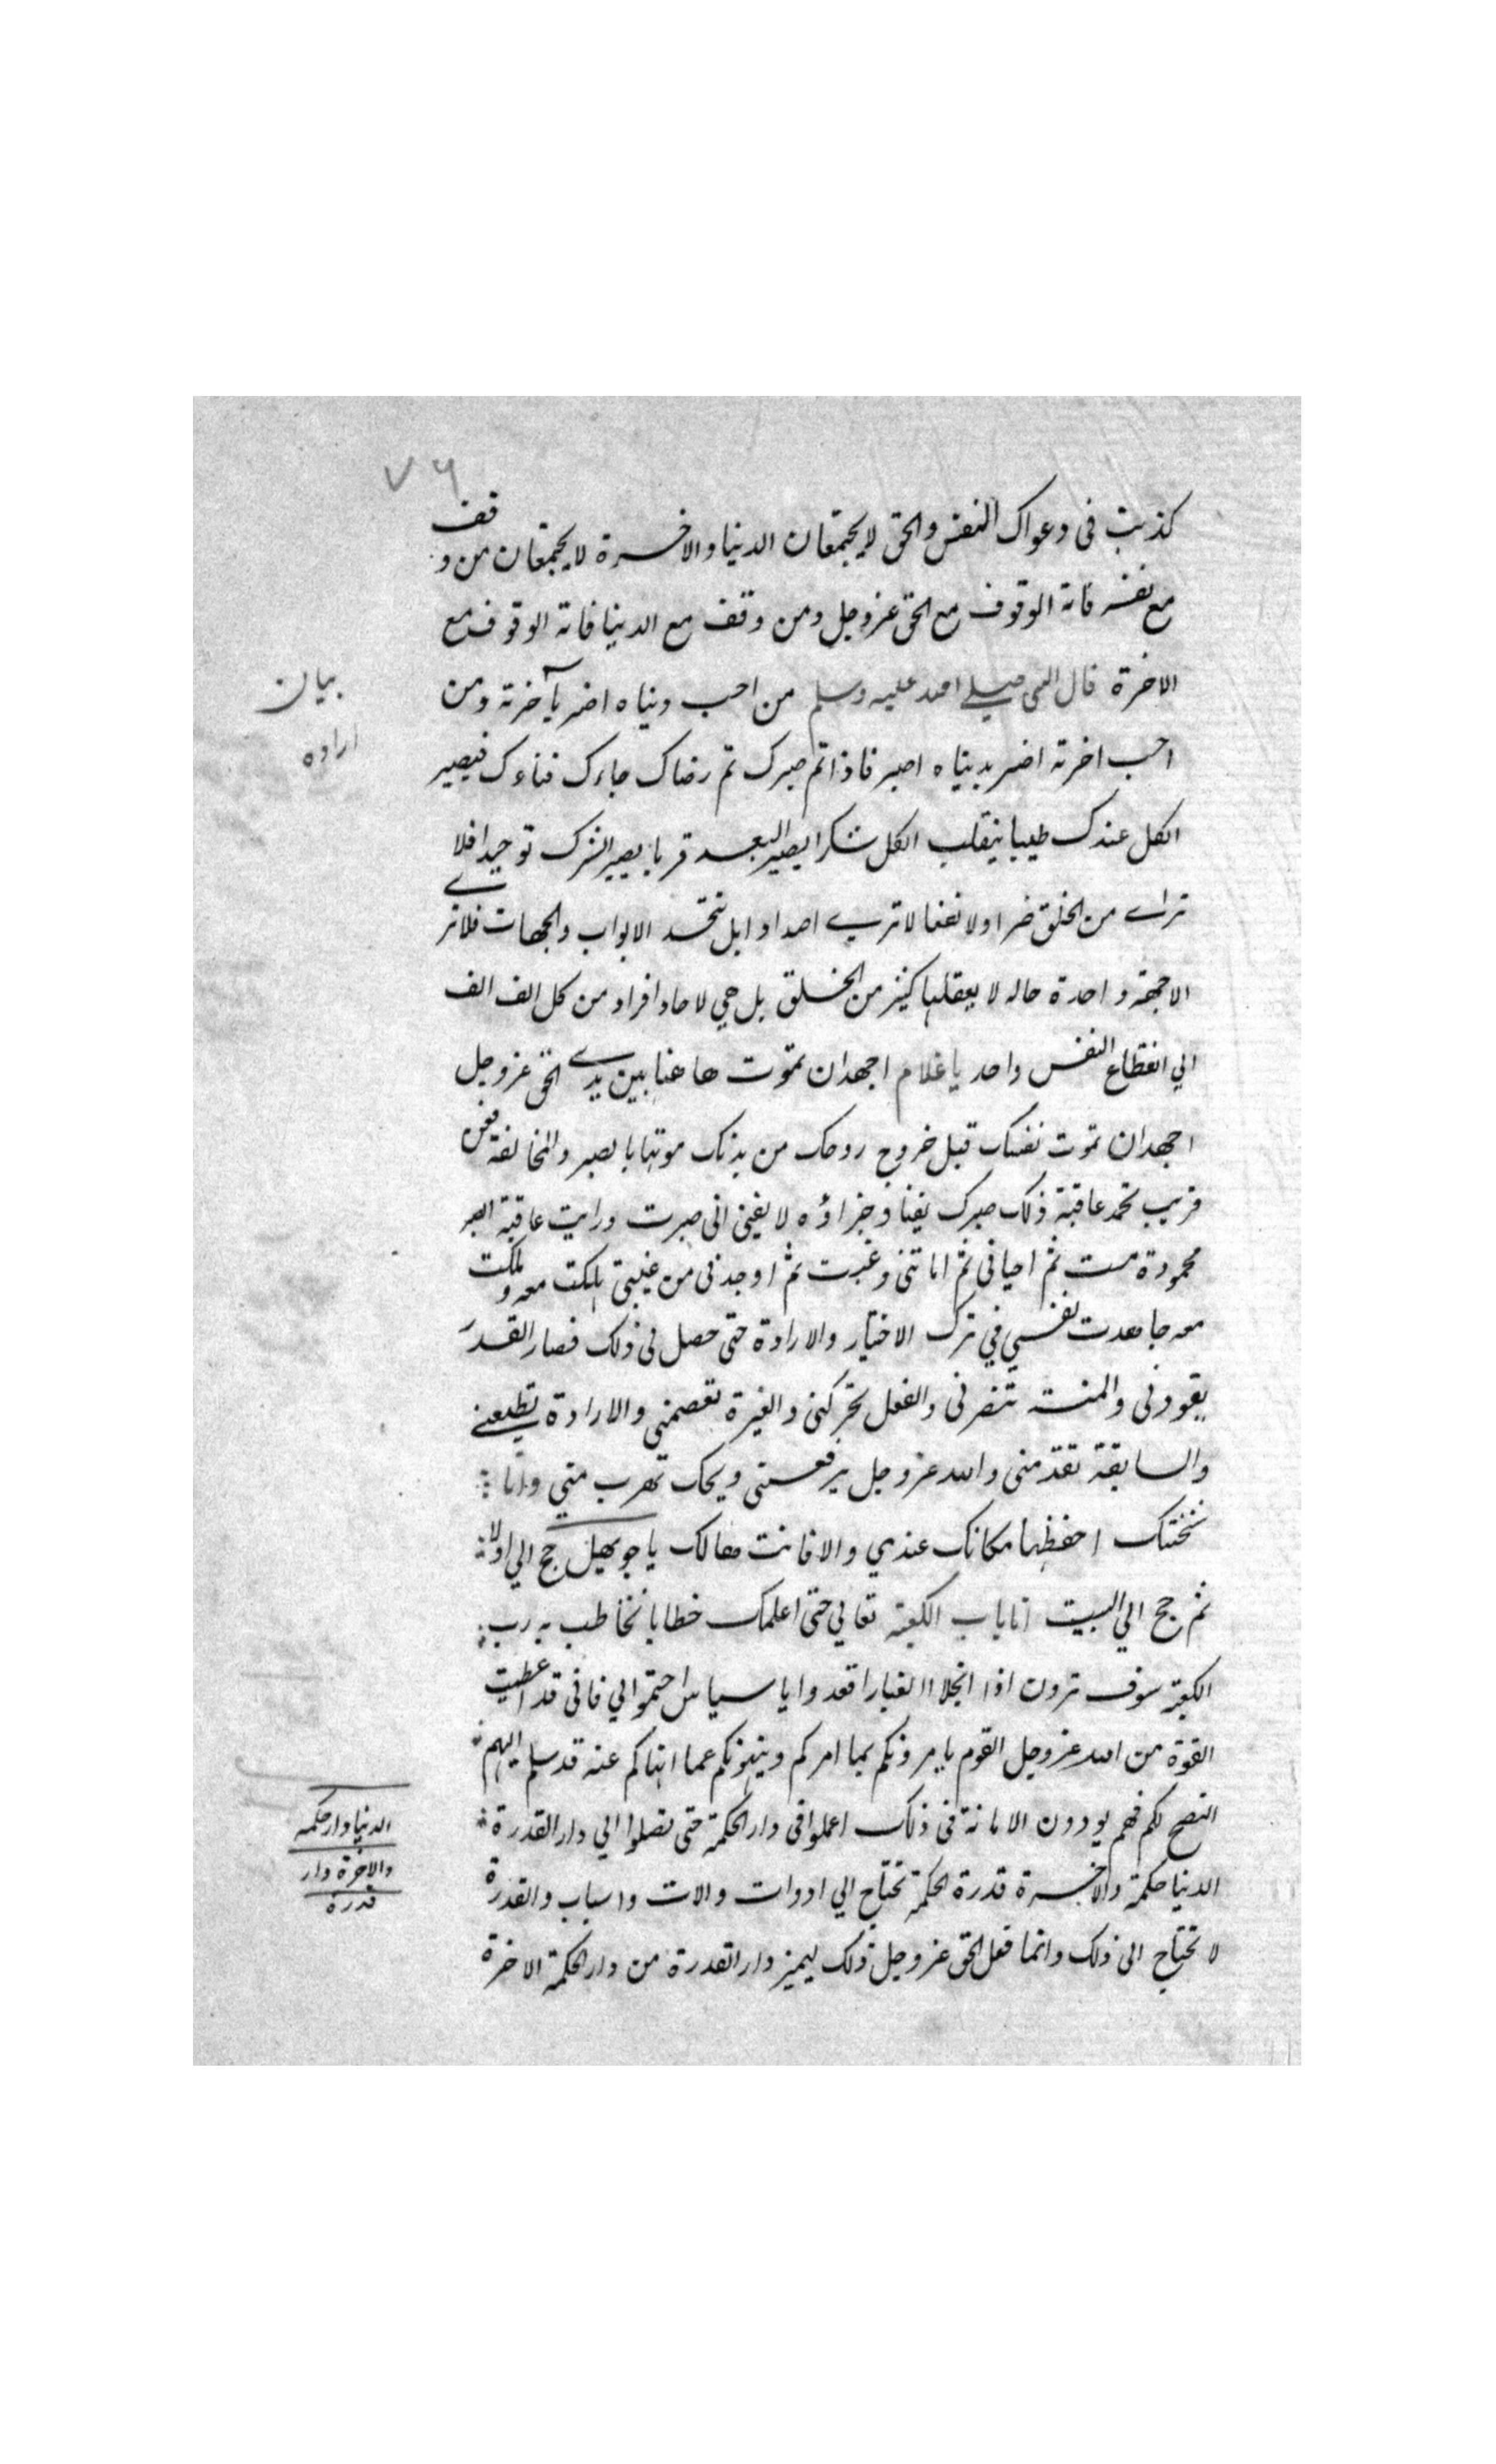 ٧٦
كذبت فى دعواك النفس والحق لا يجتمعان الدنيا والاخرة لا يجتمعان من وقف
مع نفسه فاته الوقوف مع الحق عز وجل ومن وقف مع الدنيا فاته الوقوف مع
الاخرة قال النبى صلى الله عليه وسلم من احب دنياه اضر بآخرته ومن
احب اخرته اضر بدنياه اصبر فاذا تم صبرك تم رضاك جاءك فناءك فيصير
الكل عندك طيبا ينقلب الكل شكرا يصير البعد قربا يصير الشرك توحيدا فلا
تراى من الخلق ضرا ولا نفعا لا ترى اضدادا بل تتحد الابواب والجهات فلا ترى
الا جهة واحدة حالة لا يعقلها كثير من الخلق بل هي لاحاد افراد من كل الف الف
الي انقطاع النفس واحد يا غلام اجهد ان تموت هاهنا بين يدى الحق عز وجل
اجهد ان تموت نفسك قبل خروج روحك من بدنك موتها بالصبر والمخالفة فعن
قريب تحمد عاقبة ذلك صبرك يفنا وجزاؤه لا يفنى انى صبرت ورايت عاقبة الصبر
محمودة مت ثم احيانى ثم اماتنى وغبت ثم اوجدنى من غيبتى هلكت معه وملكت
معه جاهدت نفسي في ترك الاختيار والارادة حتى حصل لى ذلك فصار القدر
يقودنى والمنة تنصرنى والفعل يحركنى والغيرة تعصمنى والارادة تطيعنى
والسابقة تقدمنى والله عز وجل يرفعنى ويحك تهرب مني وانا
شحنتك احفظها مكانك عندي والا فانت هالك يا جويهل حج الي اولا
ثم حج الي البيت انا باب الكعبة تعالي حتى اعلمك خطابا تخاطب به رب
الكعبة سوف ترون اذا انجلا الغبار اقعدوا يا سياس احتموا الي فانى قد اعطيت
القوة من الله عز وجل القوم يامرونكم بما امركم وينهونكم عما انهاكم عنه قد سلم اليهم
النصح لكم فهم يودون الامانة فى ذلك اعملوا فى دار الحكمة حتى تصلوا الي دار القدرة
الدنيا حكمة والاخرة قدرة الحكمة تحتاج الي ادوات والات واسباب والقدرة
لا تحتاج الى ذلك وانما فعل الحق عز وجل ذلك ليميز دار القدرة من دار الحكمة الاخرة
بيان
اراده
الدنيا دار حكمه
والاخرة دار
قدرة